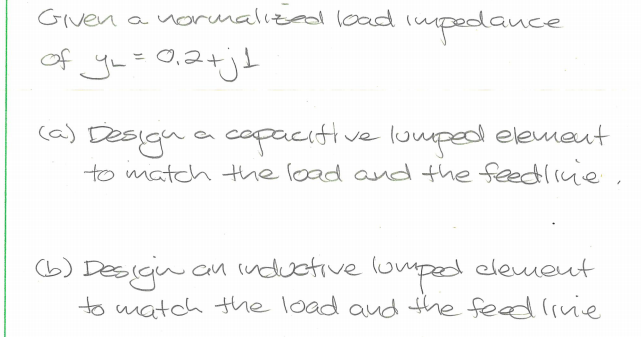 Given a normalized load impedance
of yL = 0.2+j1
(a) Design a capacitive lumped element
to match the load and the feedline.
(b) Design an inductive lumped element
to match the load and the feedline